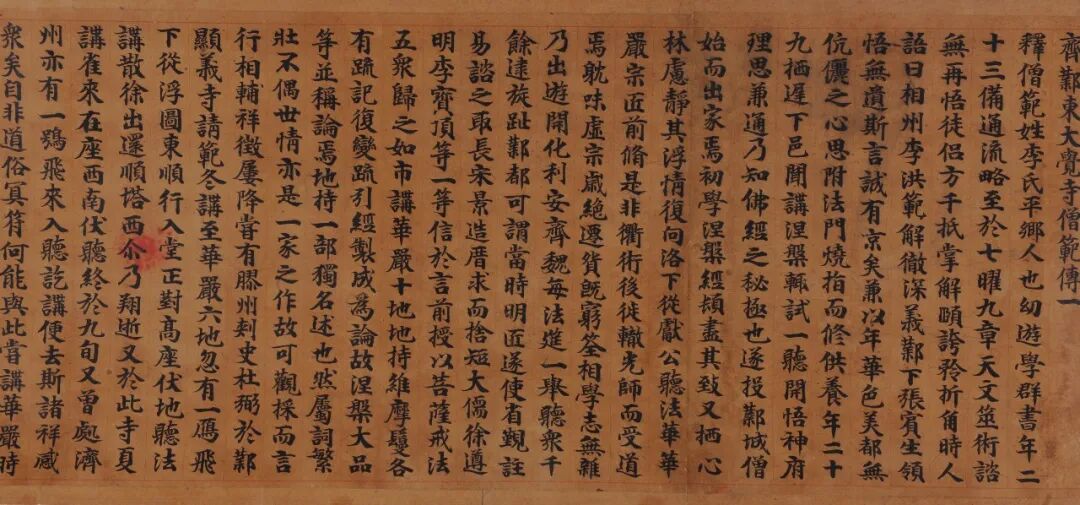 齊鄴東大覺寺僧範傳一
釋僧範姓李氏平鄉人也幼遊學群書年二
十三備通流略至於七曜九章天文筮術諮
無再悟徒侶方千抵掌解頤誇矜折角時人
語曰相州李洪範解徹深義鄴下張賓生領
悟無遺斯言誠有京矣兼以年華色美都無
伉儷之心思附法門燒指而修供養年二十
九栖遲下邑聞講涅槃輒試一聽開悟神府
理思兼通乃知佛經之秘極也遂投鄴城僧
始而出家焉初學涅槃經頻盡其致又栖心
林慮靜其浮情復向洛下從獻公聽法華華
嚴宗匠前脩是非衢術後徙轍光師而受道
焉躭味虛宗歲絕遷貨既窮筌相學志無雜
乃出遊開化利安齊魏每法筵一舉聽衆千
餘逮旋趾鄴都可謂當時明匠遂使省觀註
易諮之取長宋景造曆求而捨短大儒徐遵
明李寶頂等一等信於言前授以菩薩戒法
五衆歸之如市講華嚴十地地持維摩鬘各
有䟽記復變䟽引經製成爲論故涅槃大品
等並稱論焉地持一部獨名述也然屬詞繁
壯不偶世情亦是一家之作故可觀採而言
行相輔祥徵屢降嘗有膠州刾史杜弼於鄴
顯義寺請範冬講至華嚴六地忽有一鴈飛
下從浮圖東順行入堂正對高座伏地聽法
講散徐出還順塔西尒乃翔逝又於此寺夏
講雀來在座西南伏聽終於九旬又曽處濟
州亦有一鴞飛來入聽訖講便去斯諸祥感
衆矣自非道俗冥符何能與此嘗講華嚴時